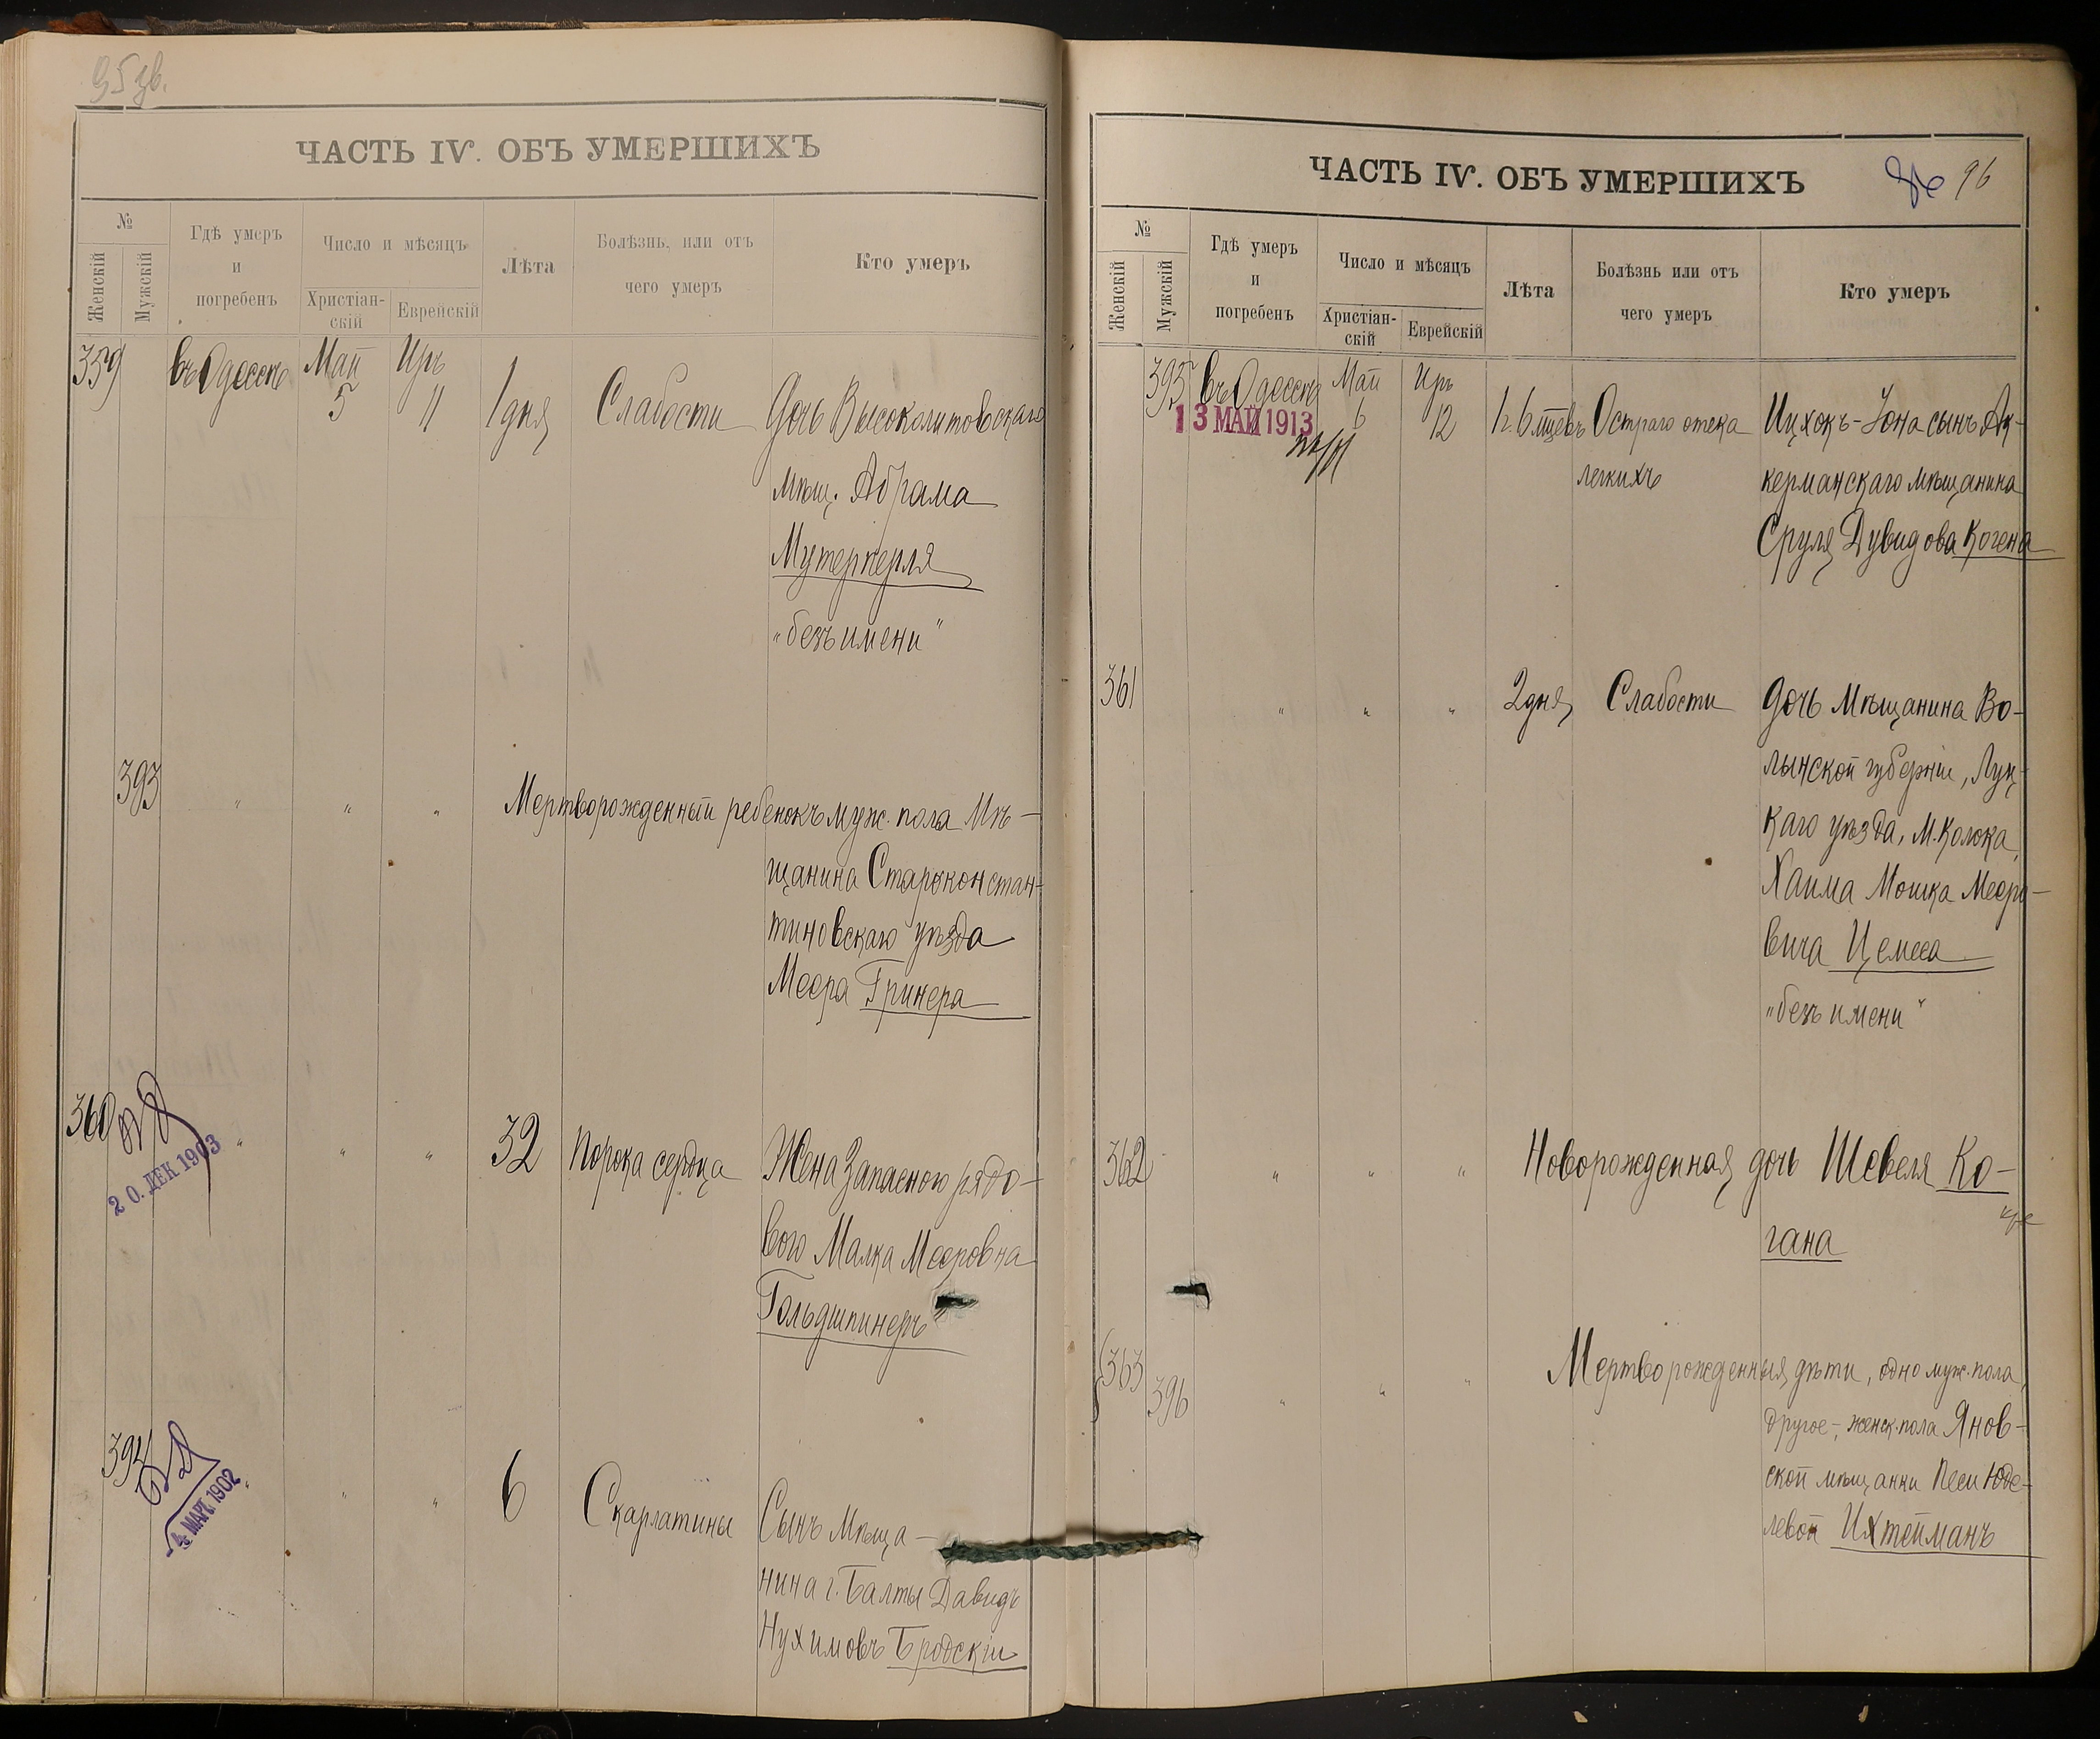 95 зв.
ЧАСТЬ IV. ОБЪ УМЕРШИХЪ
№
Женскій
Мужскій
Гдѣ умеръ
и
погребенъ
Число и мѣсяцъ
Христіан-
скій
Еврейскій
Лѣта
Болѣзнь, или отъ
чего умеръ
Кто умеръ
359 въ Одессѣ Май 5 Иръ 11 1 дня Слабости Дочь Высоколитовскаго
мѣщ. Абрама
Мутерперля
„безъ имени"
393 " " " Мертворожденный ребенокъ муж. пола Мѣ-
щанина Староконстан-
тиновскаго уѣзда
Меера Гринера
360 " " " 32 Порока сердца Жена Запасного рядо-
вого Малка Мееровна
Гольдшпинеръ
20. ДЕК 1903
394 " " 6 Скарлатины Сынъ Мѣща-
нина г. Балты Давидъ
Нухимовъ Бродскій
4 МАРТ 1902
ЧАСТЬ IV. ОБЪ УМЕРШИХЪ
96
№
Женскій
Мужскій
Гдѣ умеръ
и
погребенъ
Число и мѣсяцъ
Христіан-
скій
Еврейскій
Лѣта
Болѣзнь или отъ
чего умеръ
Кто умеръ
395 въ Одессѣ Май 6 Иръ 12 1 г. 6 мцевъ Остраго отека Ицхокъ-Іона сынъ Ак-
легкихъ керманскаго мѣщанина
Сруля Дувидова Когена
13 МАЙ 1913
361 " " " 2 дня Слабости Дочь Мѣщанина Во-
лынской губерніи, Луц-
каго уѣзда, М. Колока,
Хаима Мошка Мееро-
вича Цемеса
„безъ имени"
362 " " " Новорожденная дочь Шевеля Ко-
гана
363 396 " " " Мертворожденныя дѣти, одно муж. пола,
другое - женск. пола Янов-
ской мѣщанки Песи Юде-
левой Ихтейманъ